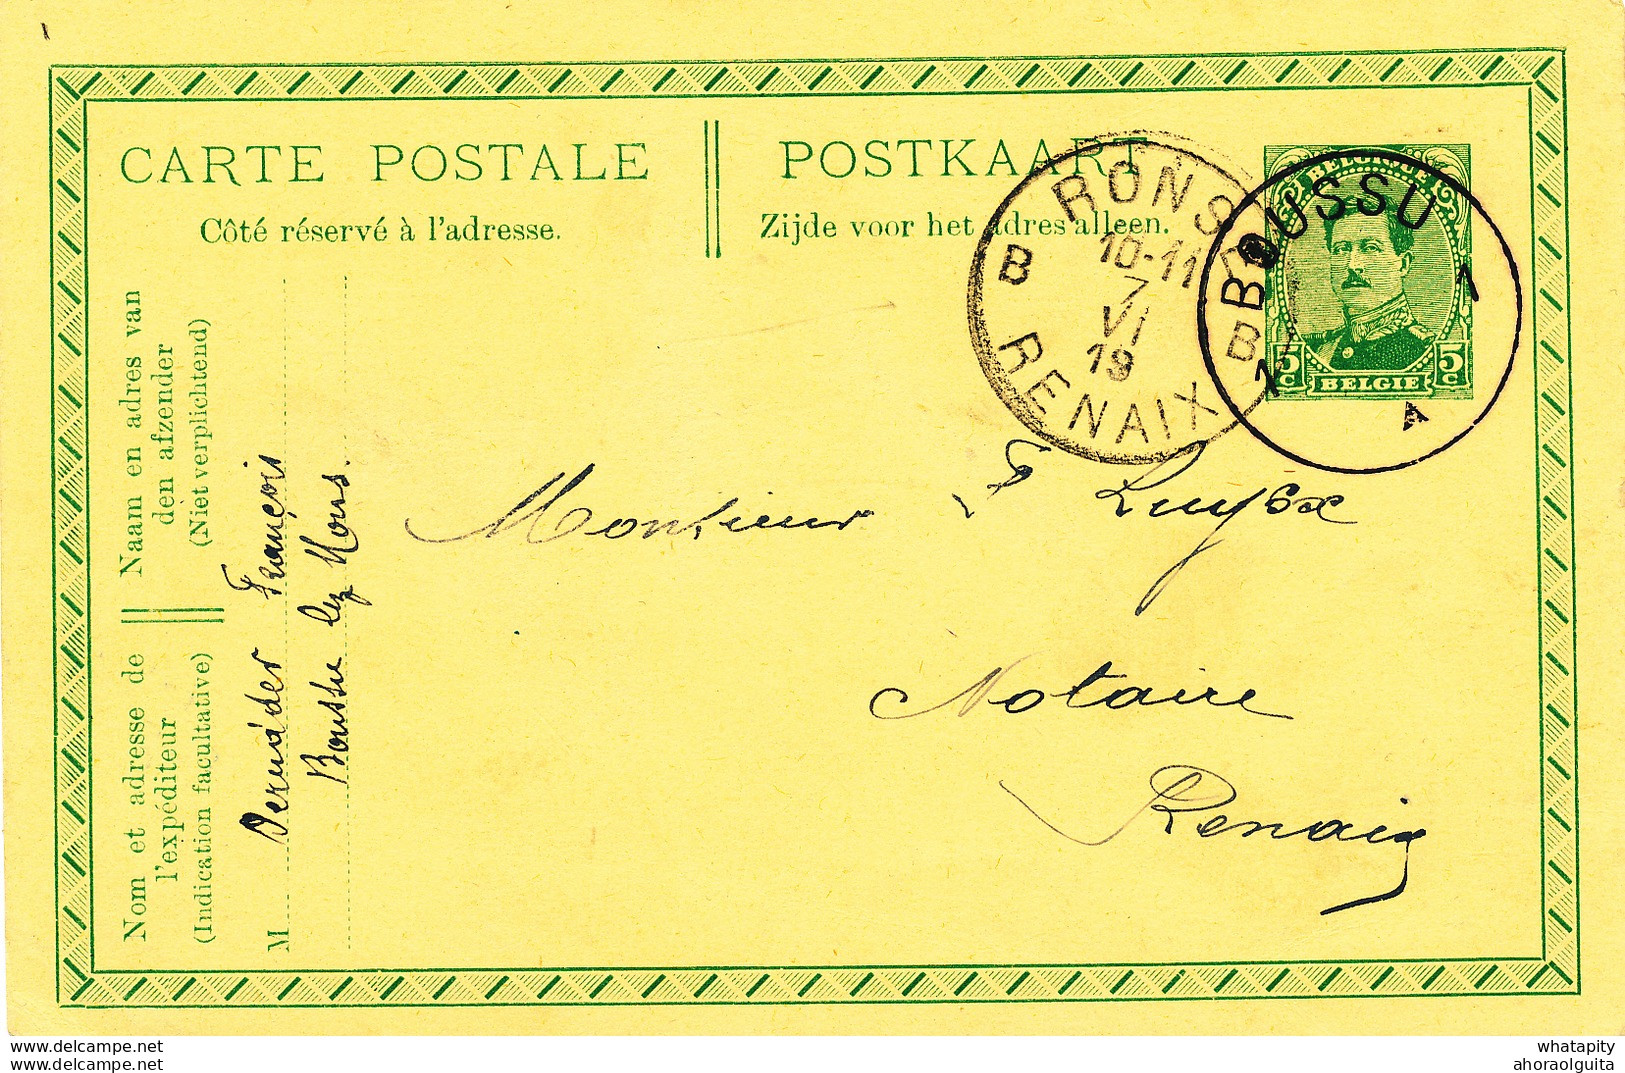 CARTE POSTALE
Côté réservé à l'adresse.
POSTKAART
Zijde voor het adres alleen.
RONSE
B
10-11
7
VI
19
B
RENAIX
BOUSSU
1
1
A
BELGIQUE
5c
BELGIE
5c
Naam en adres van
den afzender
(Niet verplichtend)
Nom et adresse de
l'expéditeur
(Indication facultative)
M
François
Boussu lez Mons.
Monsieur
Notaire
Renaix
www.delcampe.net
www.delcampe.net
whatapity
ahoraolguita